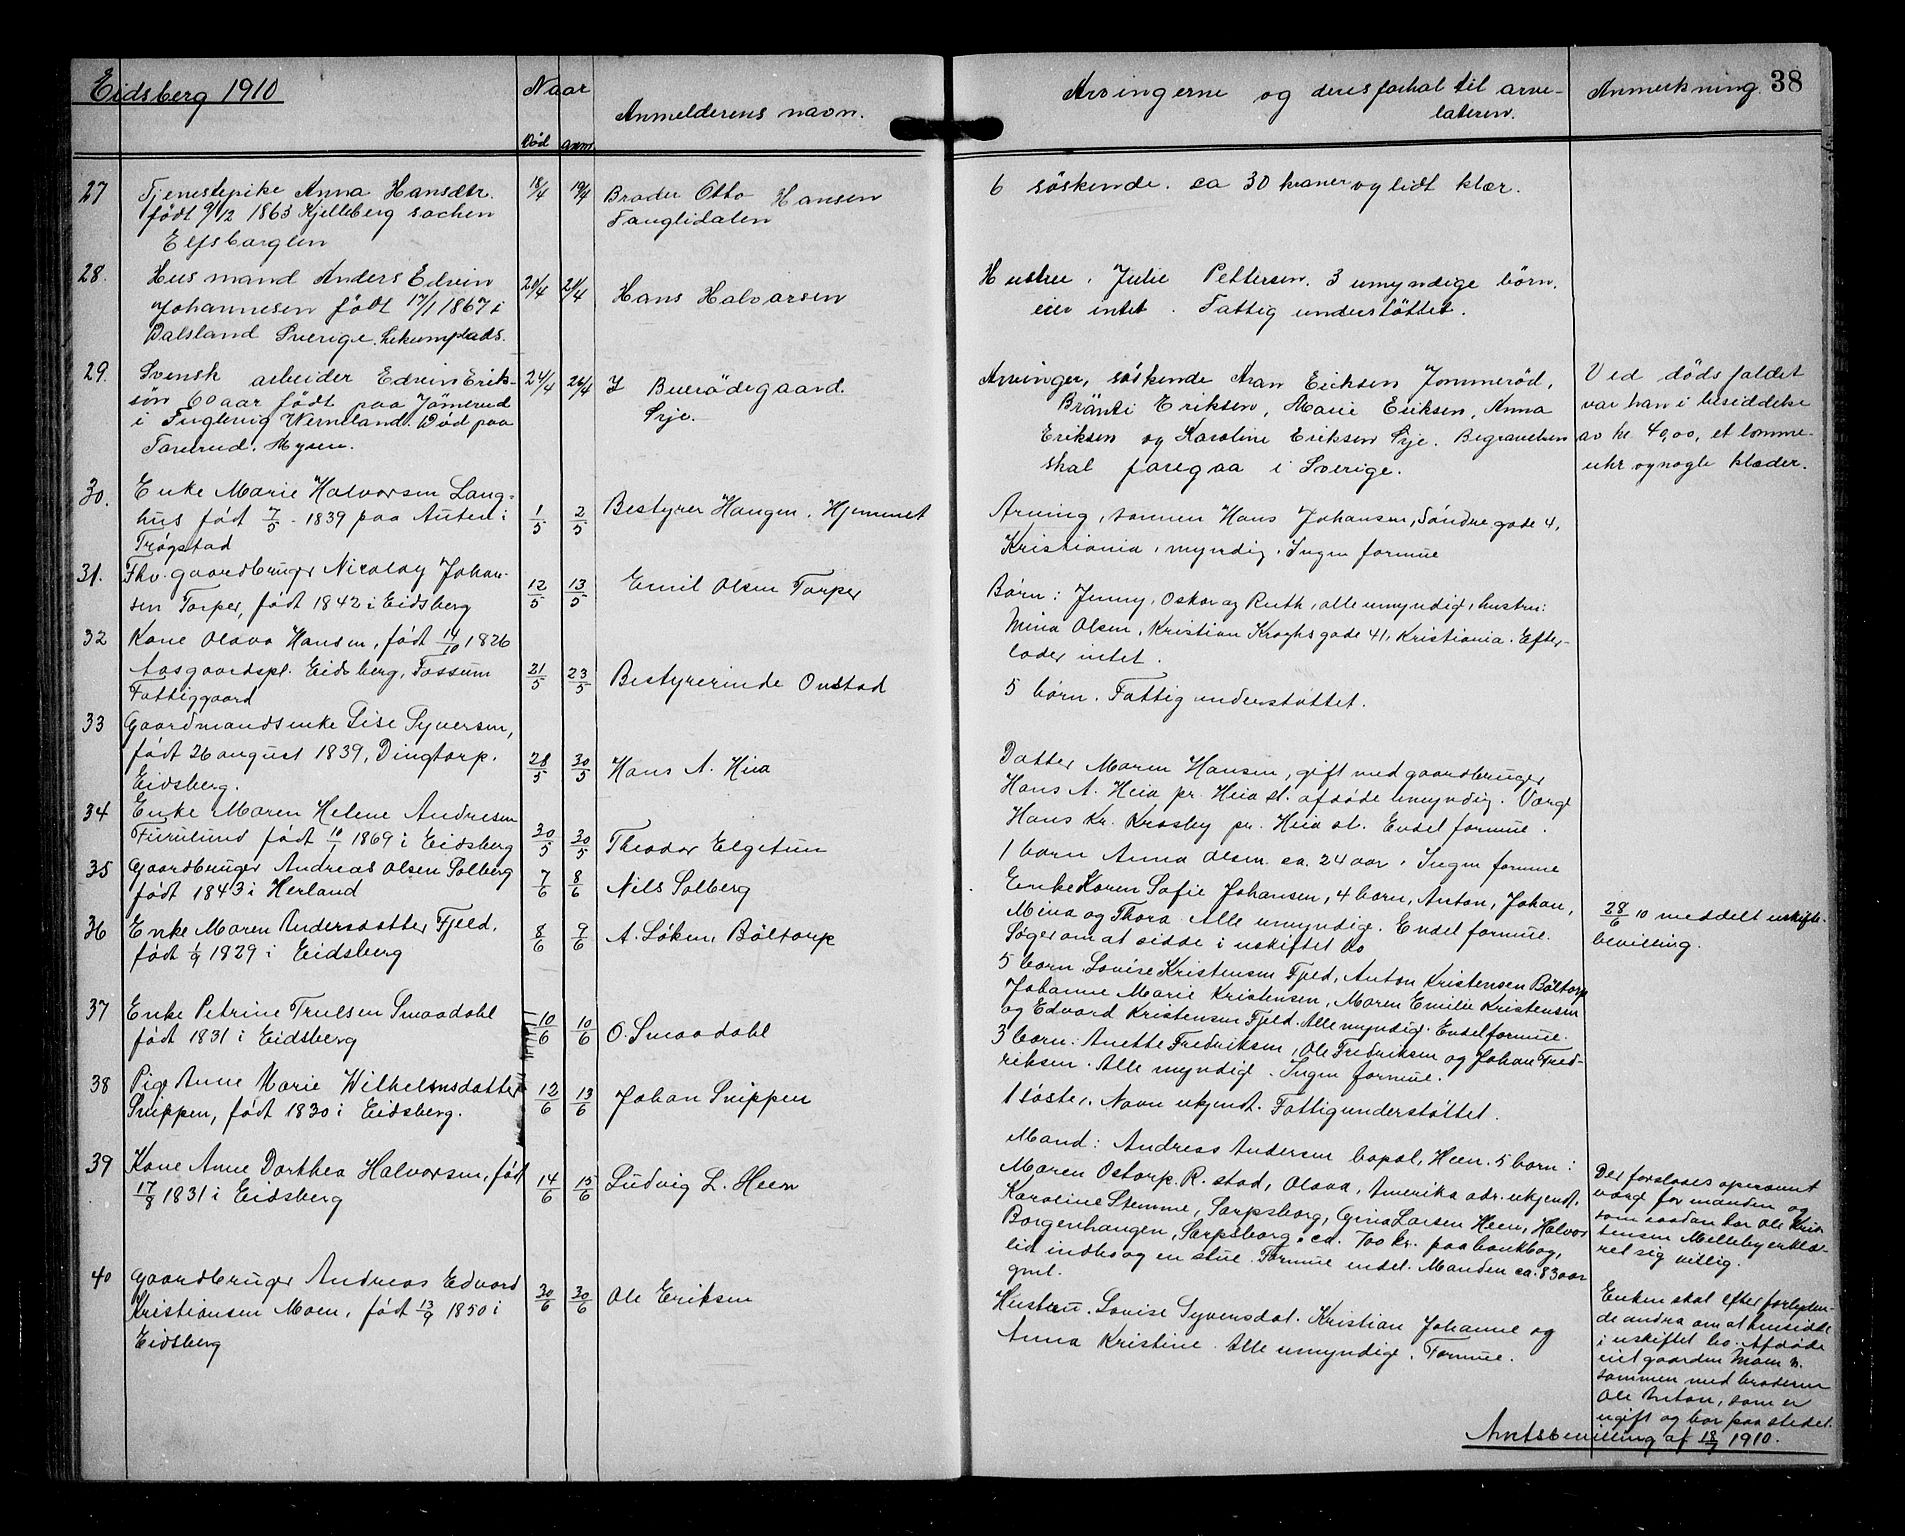 Eidsberg 1910
Naar
Död
anm
Anmelderens navn.
Arvingerne og deres forhol til arve-
lateren.
Anmerkning.
38
27
Tjenestepike Anna Hansdtr.
født 9/12 1863 Kjelleberg sochen
Elfsborglen
18/4
19/4
Broder Otto Hansen
Fauglidalen
6 söskende. ca 30 kroner og lidt klær.
28.
Husmand Anders Edvin
Johannesen födt 17/1 1867 i
Dalsland Sverige.
20/4
21/4
Hans Halvorsen
Hustru. Julie Pettersen. 3 umyndige börn.
eier intet. Fattig understöttet.
29.
Svensk arbeider Edvin Erik-
sön 60 aar født paa Jömerud
i Wermland. Död paa
Mysen.
24/4
26/4
Srje.
Arvinger, söskende Aran Eriksen Jommeröd,
Bränti Eriksen, Marie Eriksen, Anna
Eriksen og Karoline Eriksen Srje. Begravelsen
skal foregaa i Sverige.
Ved dödsfaldet
var han i besiddelse
av kr. 40,00, et lomme-
uhr og nogle klæder.
30.
Enke Marie Halvorsen Lang-
hus født 7/5 - 1839 paa Auten i
Trøgstad
1/5
2/5
Bestyrer Haugen. Hjemmet
Arving, sønnen Hans Johansen, Söndre gade 4,
Kristiania, myndig. Ingen formue
31.
Fhv. gaardbruger Nicolay Johan-
sen Torper, født 1842 i Eidsberg
12/5
13/5
Emil Olsen Torper
Børn: Jenny, Oskar og Ruth, alle umyndig, hustru:
Mina Olsen, Kristian Kroghs gade 41, Kristiania. Efter-
lader intet.
32
Kone Olava Hansen, født 14/10 1826
Aasgaardspl. Eidsberg, Fossum
Fattiggaard
21/5
23/5
Bestyrerinde Onstad
5 børn. Fattigunderstøttet.
33
Gaardmandsenke Lise Syversen,
født 26 august 1839, Dingtorp.
Eidsberg.
28/5
30/5
Hans A. Heia
Datter Maren Hansen, gift med gaardbruger
Hans A. Heia pr. Heia st. afdøde umyndig. Verge
Hans Kr. Krosby pr. Heia st. Endel formue.
34
Enke Maren Helene Andresen
Furulund født 10/1 1869 i Eidsberg
30/5
30/5
Theodor Elgetun
1 barn Anna Olsen ca. 24 aar. Ingen formue
35
Gaardbruger Andreas Olsen Solberg
født 1843 i Herland
7/6
8/6
Nils Solberg
Enke Karen Sofie Johansen, 4 barn, Anton, Johan,
Mina og Thora. Alle umyndige. Endel formue.
Søger om at sidde i uskiftet bo
28/6 10 meddelt uskifte-
bevilling.
36
Enke Maren Andersdatter Fjeld,
født 1/9 1829 i Eidsberg
8/6
9/6
A. Løken Böltorp
5 barn Lovise Kristensen Fjeld, Anton Kristensen Böltorp
Johanne Marie Kristensen, Maren Emilie Kristensen
og Edvard Kristensen Fjeld. Alle myndig. Endel formue.
37
Enke Petrine Trulsen Smaadahl
født 1831 i Eidsberg
10/6
10/6
O. Smaadahl
3 barn: Anette Fredriksen, Ole Fredriksen og Johan Fred-
riksen. Alle myndig. Ingen formue.
38
Pige Anne Marie Wilhelmsdatter
Snippen, født 1830 i Eidsberg.
12/6
13/6
Johan Snippen
1 søster. Navn ukjendt. Fattigunderstøttet.
39
Kone Anne Dorthea Halvorsen, født
17/8 1831 i Eidsberg
14/6
15/6
Ludvig L. Heen
Mand: Andreas Andersen bopæl, Heen. 5 barn:
Maren Ostorp. R.stad, Olava, Amerika adr. ukjendt,
Karoline Stemme, Sarpsborg, Gina Larsen Heen, Halvor
Borgenhaugen, Sarpsborg. ca. 700 kr. paa bankbog,
lit indbo og en stue. Formue endel. Manden ca. 83 aar
gml.
Der foreslaaes opnævnt
verge for manden og
som saadan har Ole Kris-
tensen Melleby erklæ-
ret sig villig.
40
Gaardbruger Andreas Edvard
Kristiansen Moen, født 13/9 1850 i
Eidsberg
30/6
30/6
Ole Eriksen
Hustru. Lovise Syversdat. Kristian Johanne og
Anna Kristine. Alle umyndige. Formue.
Enken skal efter forlyden-
de andra om at hensidde
i uskiftet bo. Afdøde
eiet gaarden Moen n.
sammen med broderen
Ole Anton, som er
ugift og bor paa stedet.
Amtsbevilling af 18/7 1910.